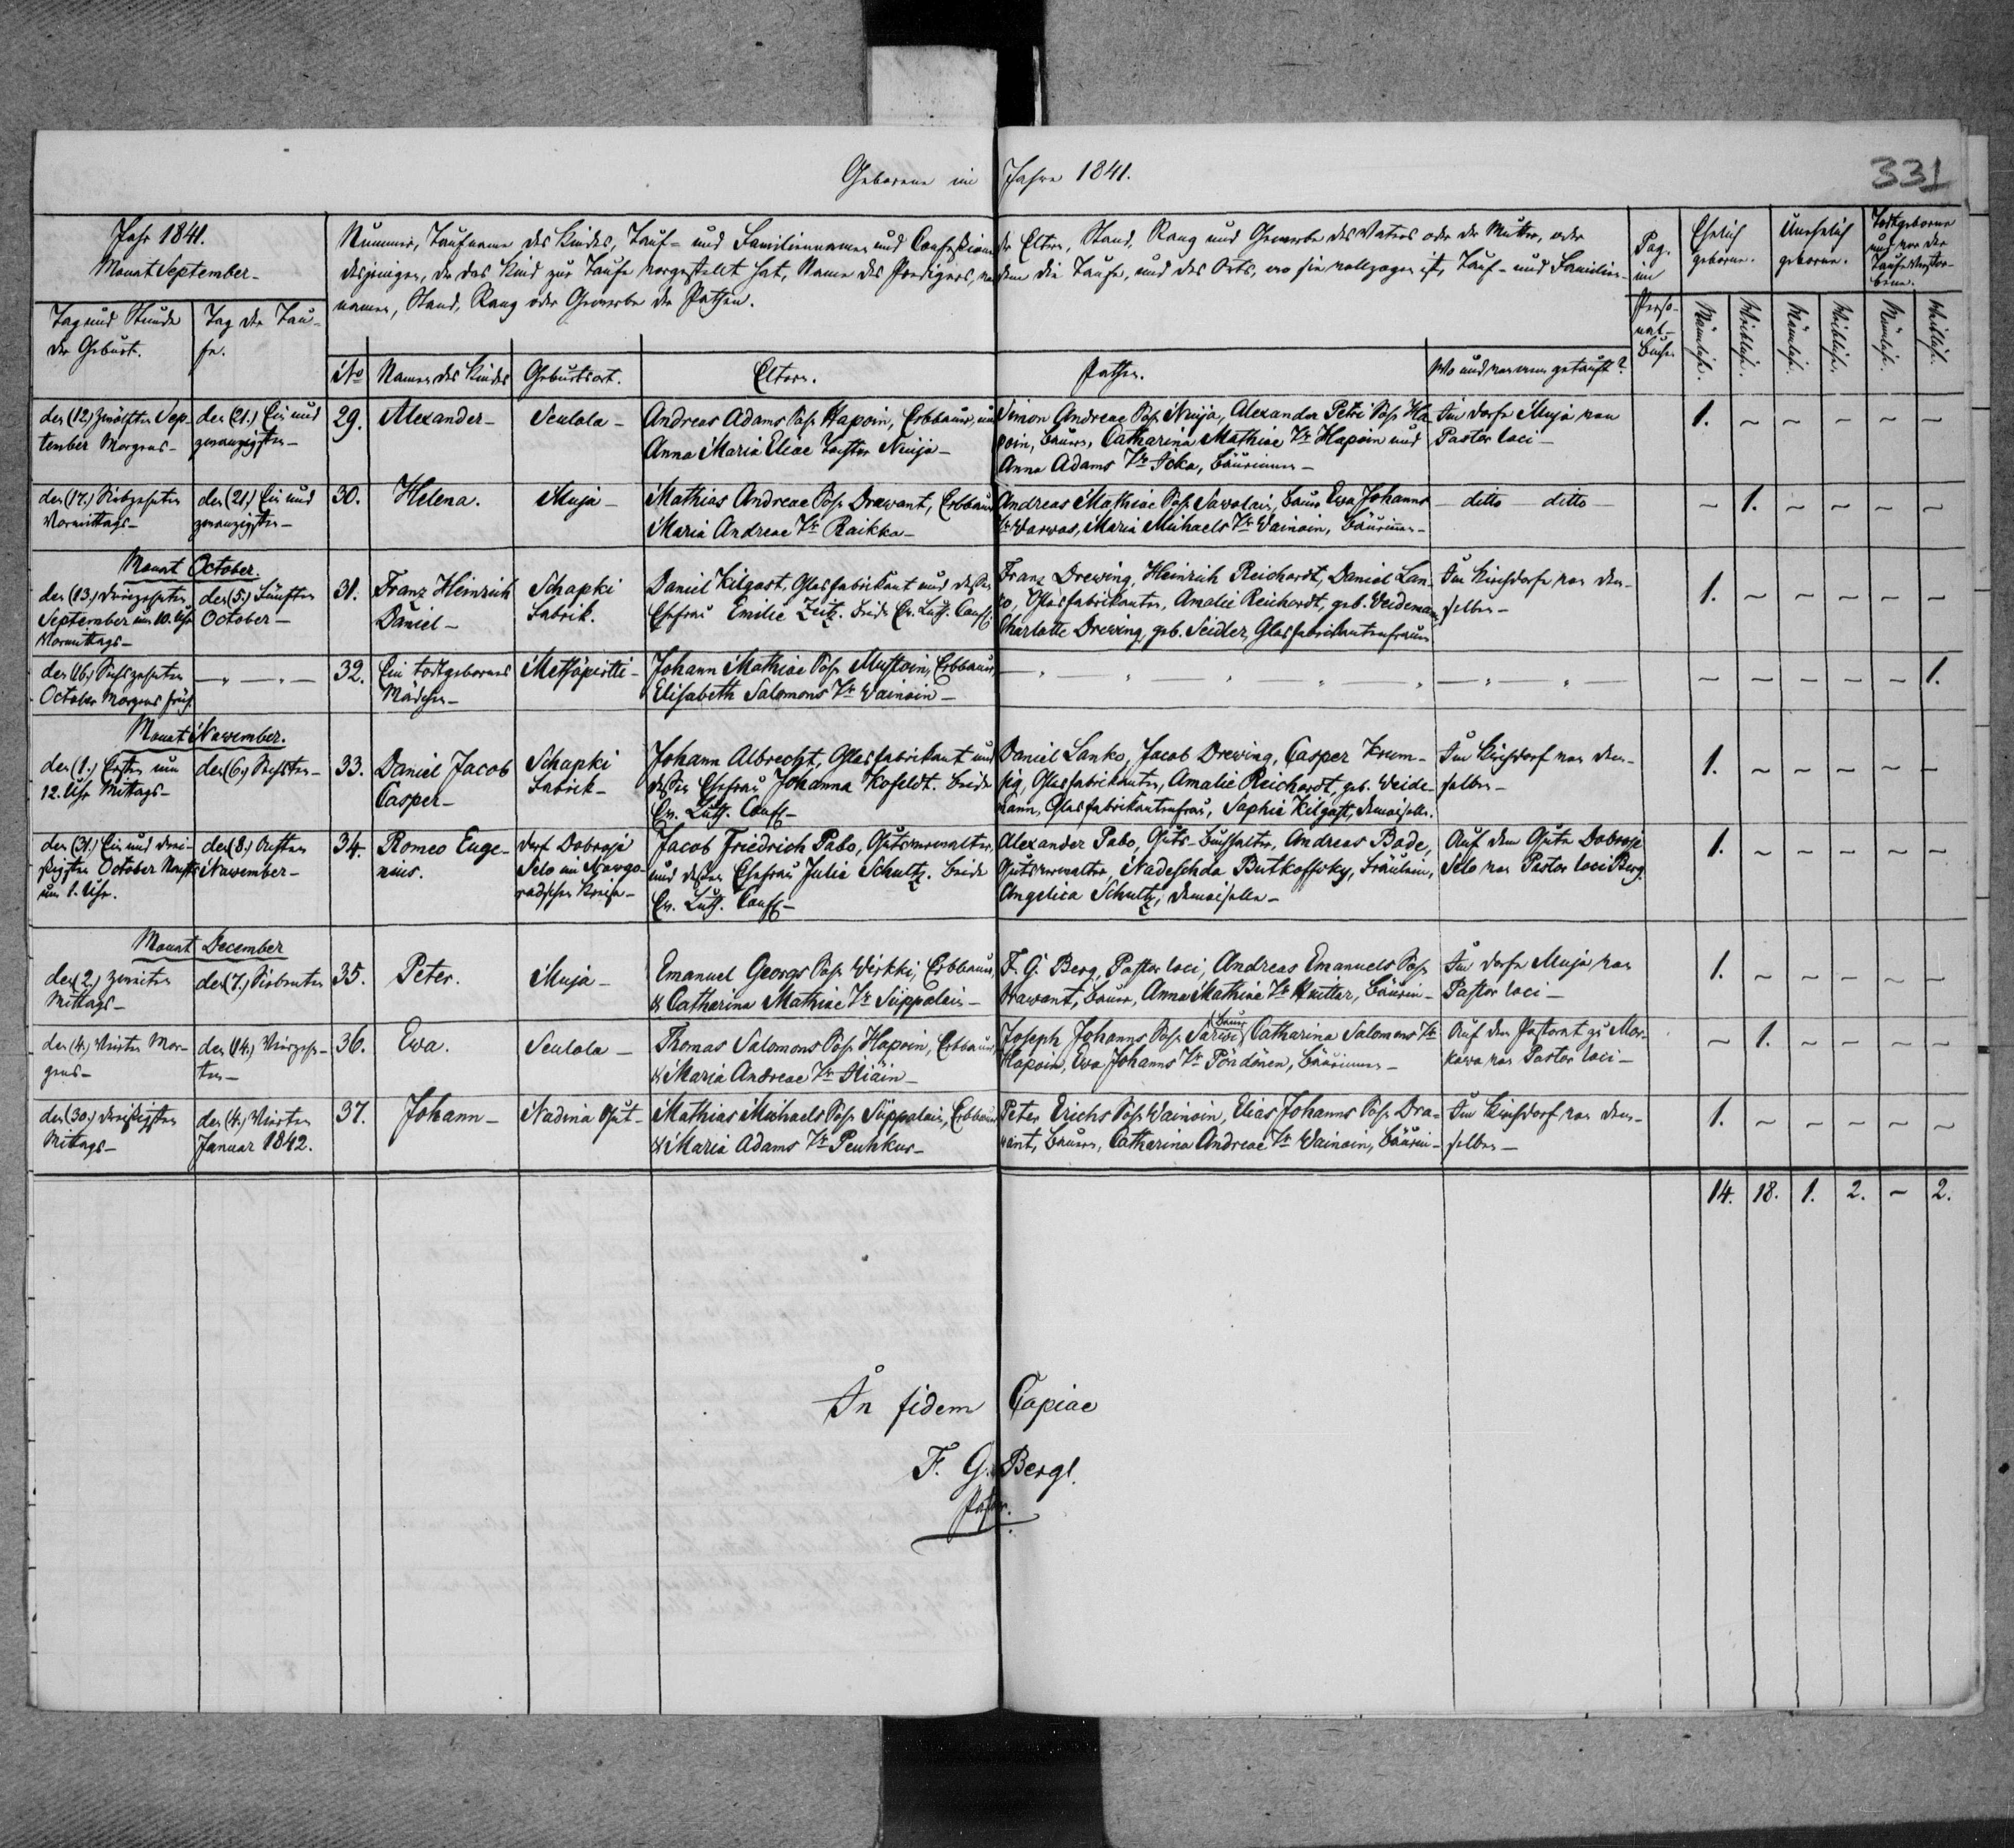 Geborene im Jahre 1841.
331
Jahr 1841.
Monat September.
Nummer, Taufname des Kindes, Tauf- und Familiennamen und Confession der Eltern, Stand, Rang und Gewerbe des Vaters oder der Mutter, oder
desjenigen, der das Kind zur Taufe vorgestellt hat, Name des Predigers, die Taufe, und des Orts, wo sie vollzogen ist, Tauf- und Familien-
namen, Stand, Rang oder Gewerbe der Pathen.
Pag. im Perso-nal-Buche.
Ehelich geborene.
Unehelich geborene.
Todtgeborene und vor der Taufe Verstor-bene.
Tag und Stunde der Geburt.
Tag der Tau-fe.
No
Namen des Kindes
Geburtsort.
Eltern.
Pathen.
Wo und von wem getauft?
Männlich. Weiblich. Männlich. Weiblich. Männlich. Weiblich.
den (12.) zwölften Sep- den (21.) Ein und 29. Alexander- Seulola- Andreas Adams Sohn Hapoin, Erbbauer, und Simon Andreae Sohn Ninja, Alexander Petri Sohn Ha- Im Dorfe Muja von 1. ~ ~ ~ ~ ~
tember Morgens- zwanzigsten- Anna Maria Eliae Tochter Ninja- poin, Bauern, Catharina Mathiae Tr Hapoin und Pastor loci-
Anna Adams Tr Icka, Bäurinnen-
den (17.) Siebzehnten den (21.) Ein und 30. Helena. Muja- Mathias Andreae Sohn Drawant, Erbbauer Andreas Mathiae Sohn Sawolain, Bauer Ewa Johanns - ditto ditto - ~ 1. ~ ~ ~ ~
Vormittags- zwanzigsten- Maria Andreae Tr Raikka- Tr Warwas, Maria Michaels Tr Wainoin, Bäurinnen-
Monat October.
den (13.) dreizehnten den (5.) Fünften 31. Franz Heinrich Schapki Daniel Kilgast, Glasfabrikant und dessen Franz Drewing, Heinrich Reichardt, Daniel Lan- Im Kirchdorfe von dem- 1. ~ ~ ~ ~ ~
September um 10. Uhr October- Daniel- Fabrik. Ehefrau Emilie Zeitz. Beide Ev. Luth. Conf. ko, Glasfabrikanten, Amalie Reichardt, geb. Weidemann, selben-
Vormittags- Charlotte Drewing, geb. Seidler, Glasfabrikantenfrauen
den (16.) Sechszehnten 32. Ein todtgeborenes Metsäpirtti- Johann Mathiae Sohn Mustoin, Erbbauer, ~ ~ ~ ~ ~ 1.
October Morgens früh. Mädchen- Elisabeth Salomons Tr Wainoin-
Monat November.
den (1.) Ersten um den (6.) Sechsten- 33. Daniel Jacob Schapki Johann Albrecht, Glasfabrikant und Daniel Lanko, Jacob Drewing, Casper Krum- Im Kirchdorf von dem- 1. ~ ~ ~ ~ ~
12. Uhr Mittags- Casper- Fabrik- dessen Ehefrau Johanna Kofeldt. Beide sig, Glasfabrikanten, Amalie Reichardt, geb. Weide- selben-
Ev. Luth. Conf- mann, Glasfabrikantenfrau, Sophie Kilgast, Demoiselle.
den (31.) Ein und drei- den (8.) Achten 34. Romeo Euge- Dorf Dobroje Jacob Friedrich Pabo, Gutsverwalter, Alexander Pabo, Guts-Buchhalter, Andreas Bade, Auf dem Gute Dobroje 1. ~ ~ ~ ~ ~
ßigsten October Nachts November- nius. Selo im Nowgo- und dessen Ehefrau Julie Schultz. Beide Gutsverwalter, Nadeschda Butkoffsky, Fräulein, Selo von Pastor loci Berg.
um 1. Uhr. rodschen Kreise- Ev. Luth. Conf- Angelica Schultz, Demoiselle-
Monat December
den (2.) zweiten den (7.) Siebenten 35. Peter. Muja- Emanuel Georgs Sohn Wirkki, Erbbauer, F. G. Berg, Pastor loci, Andreas Emanuels Sohn Im Dorfe Muja von 1. ~ ~ ~ ~ ~
Mittags- & Catharina Mathiae Tr Suppolain- Drawant, Bauer, Anna Mathiae Tr Huttar, Bäurin- Pastor loci-
den (4.) Vierten Mor- den (14.) Vierzehn- 36. Ewa. Seulola- Thomas Salomons Sohn Hapoin, Erbbauer, Joseph Johanns Sohn Sarwi (Bauer) Catharina Salomons Tr Auf dem Pastorat zu Mar- ~ 1. ~ ~ ~ ~
gens- ten- & Maria Andreae Tr Hiäin- Hapoin, Ewa Johanns Tr Pöndönen, Bäurinnen- kowa von Pastor loci-
den (30.) dreißigsten den (4.) Vierten 37. Johann- Nadina Gut- Mathias Michaels Sohn Suppolain, Erbbauer Peter Erichs Sohn Wainoin, Elias Johanns Sohn Dra- Im Kirchdorf von dem- 1. ~ ~ ~ ~ ~
Mittags- Januar 1842. & Maria Adams Tr Peuhkur- want, Bauern, Catharina Andreae Tr Wainoin, Bäurin- selben-
14. 18. 1. 2. ~ 2.
In fidem Copiae
F. G. Berg.
Pastor.